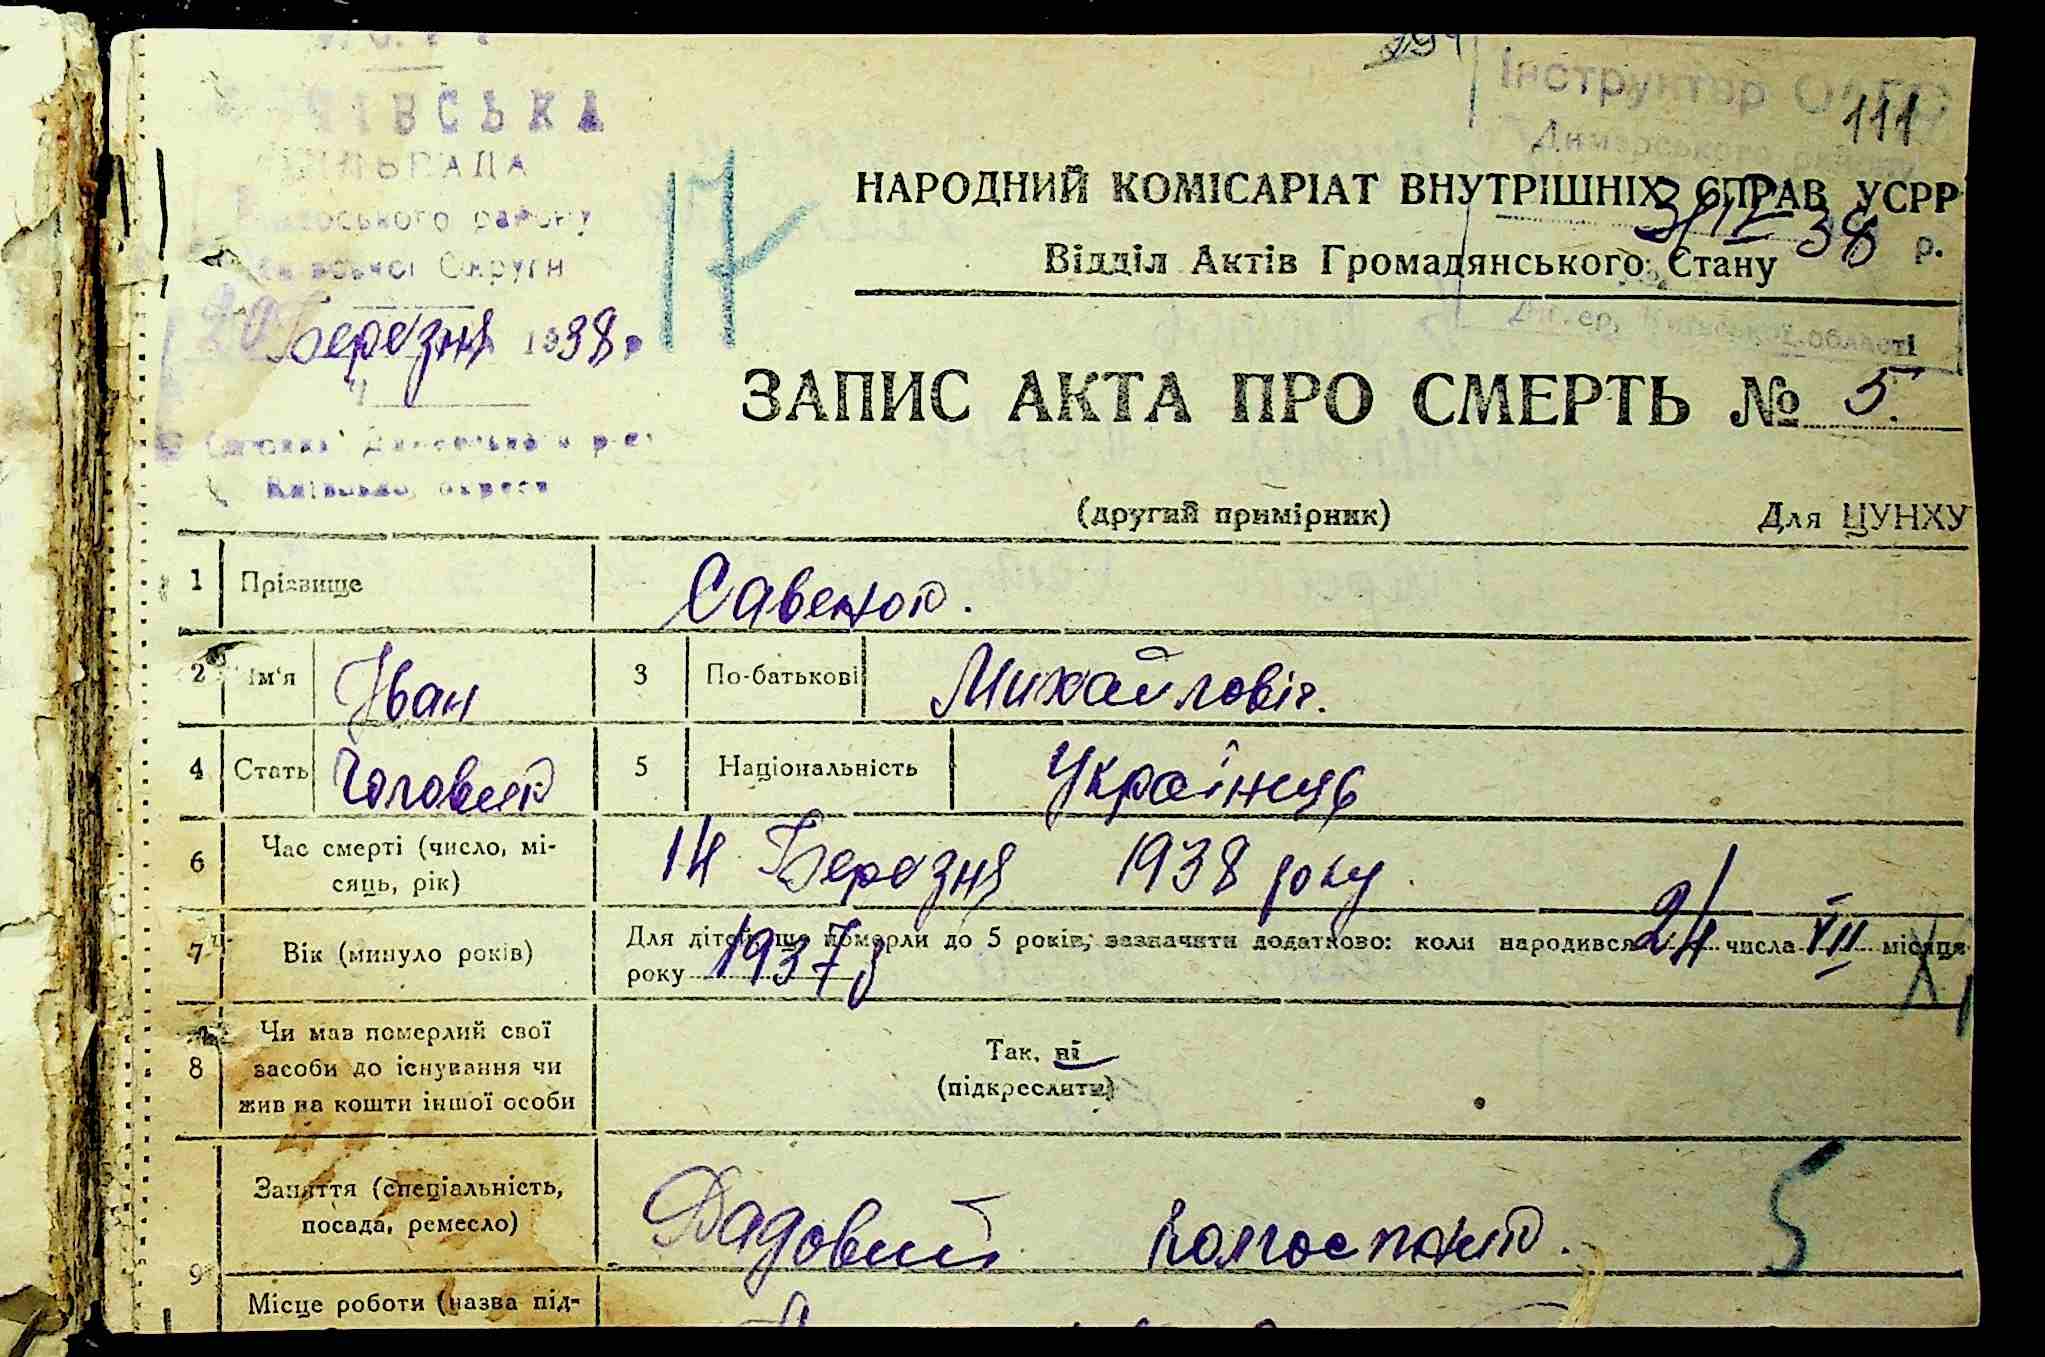 111
Інструктор
Димерського району
СІЛЬРАДА
району
Округи
20 Березня 1938 р
17
НАРОДНИЙ КОМІСАРІАТ ВНУТРІШНІХ СПРАВ УСРР
3/IV 38 р.
Відділ Актів Громадянського Стану
Димер, Київської області
ЗАПИС АКТА ПРО СМЕРТЬ № 5.
(другий примірник)
Для ЦУНХУ
1 Прізвище Савенок.
2 Ім'я Іван 3 По-батькові Михайловіч.
4 Стать Чоловик 5 Національність Українць
6 Час смерті (число, мі-
сяць, рік) 14 Березня 1938 року.
7 Вік (минуло років) Для дітей, що померли до 5 років, зазначити додатково: коли народився 24 числа VII місяця
року 1937 р
8 Чи мав померлий свої
засоби до існування чи
жив на кошти іншої особи
Так, ні
(підкреслити)
9 Заняття (спеціальність,
посада, ремесло) Рядовий колгоспник. 5
Місце роботи (назва під-